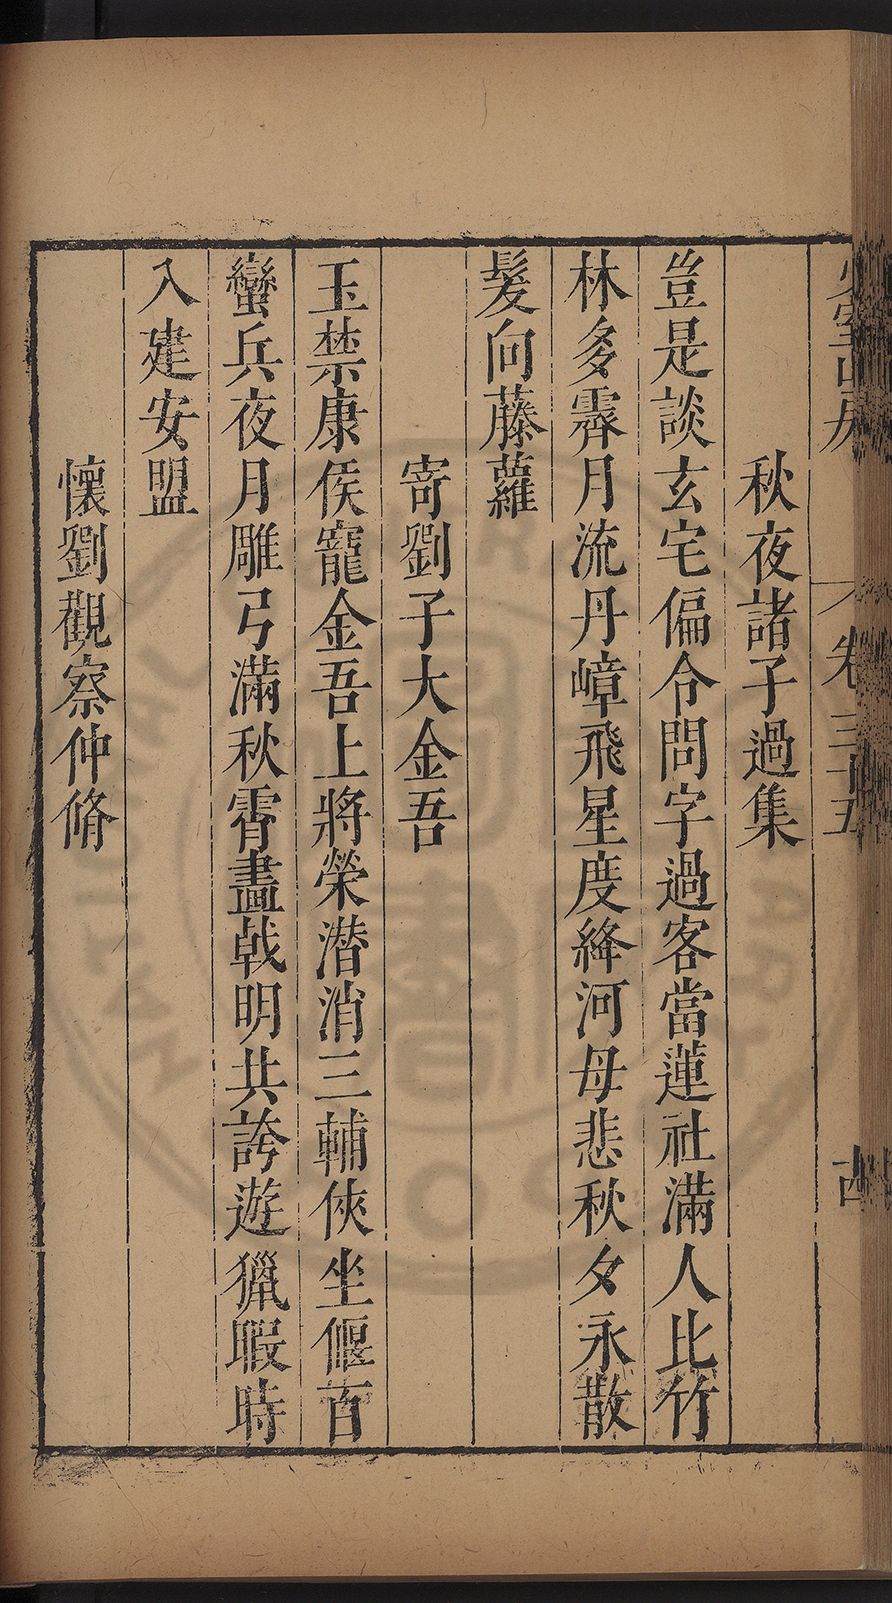 少室山房
卷三十五
秋夜諸子過集
豈是談玄宅偏令問字過客當蓮社滿人比竹
林多霽月流丹嶂飛星度絳河母悲秋夕永散
髮向藤蘿
寄劉子大金吾
玉禁康侯寵金吾上將榮潛消三輔俠坐偃百
蠻兵夜月雕弓滿秋霄畫戟明共誇遊獵暇時
入建安盟
懷劉觀察仲脩